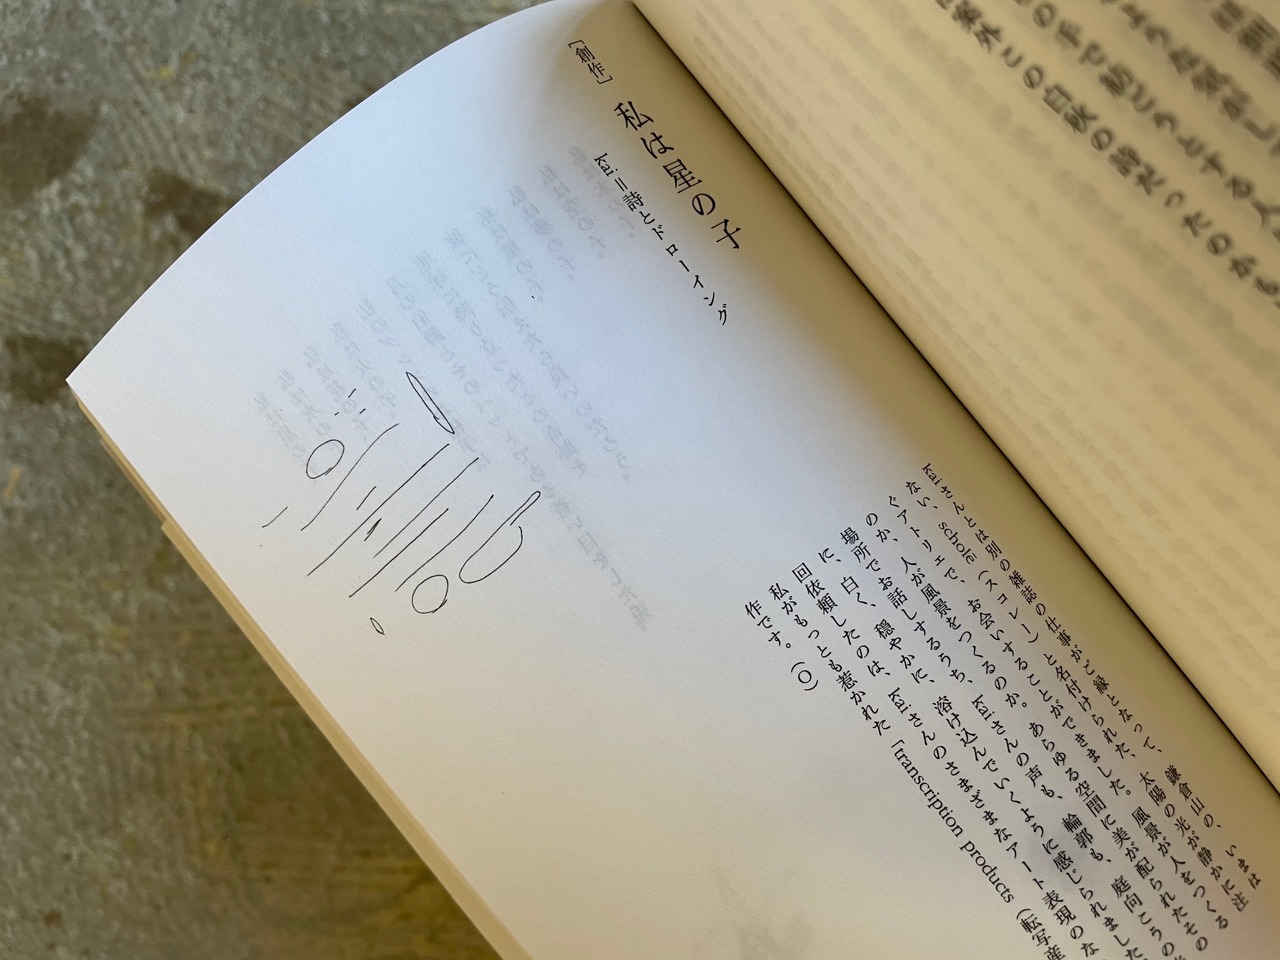 の手で紡ごうとする人
案外この白秋の詩だったのかも
［創作］
私は星の子
Kei.＝詩とドローイング
Kei.さんとは別の雑誌の仕事がご縁となって、鎌倉山の、いまは
ない、scholē（スコレー）と名付けられた、太陽の光が静かに注
ぐアトリエで、お会いすることができました。風景が人をつくる
のか、人が風景をつくるのか。あらゆる空間に美が配られたその
場所でお話しするうち、Kei.さんの声も、輪郭も、庭向こうの
に、白く、穏やかに、溶け込んでいくように感じられました
回依頼したのは、Kei.さんのさまざまなアート表現のな
私がもっとも惹かれた「transcription products（転写産
作です。（O）